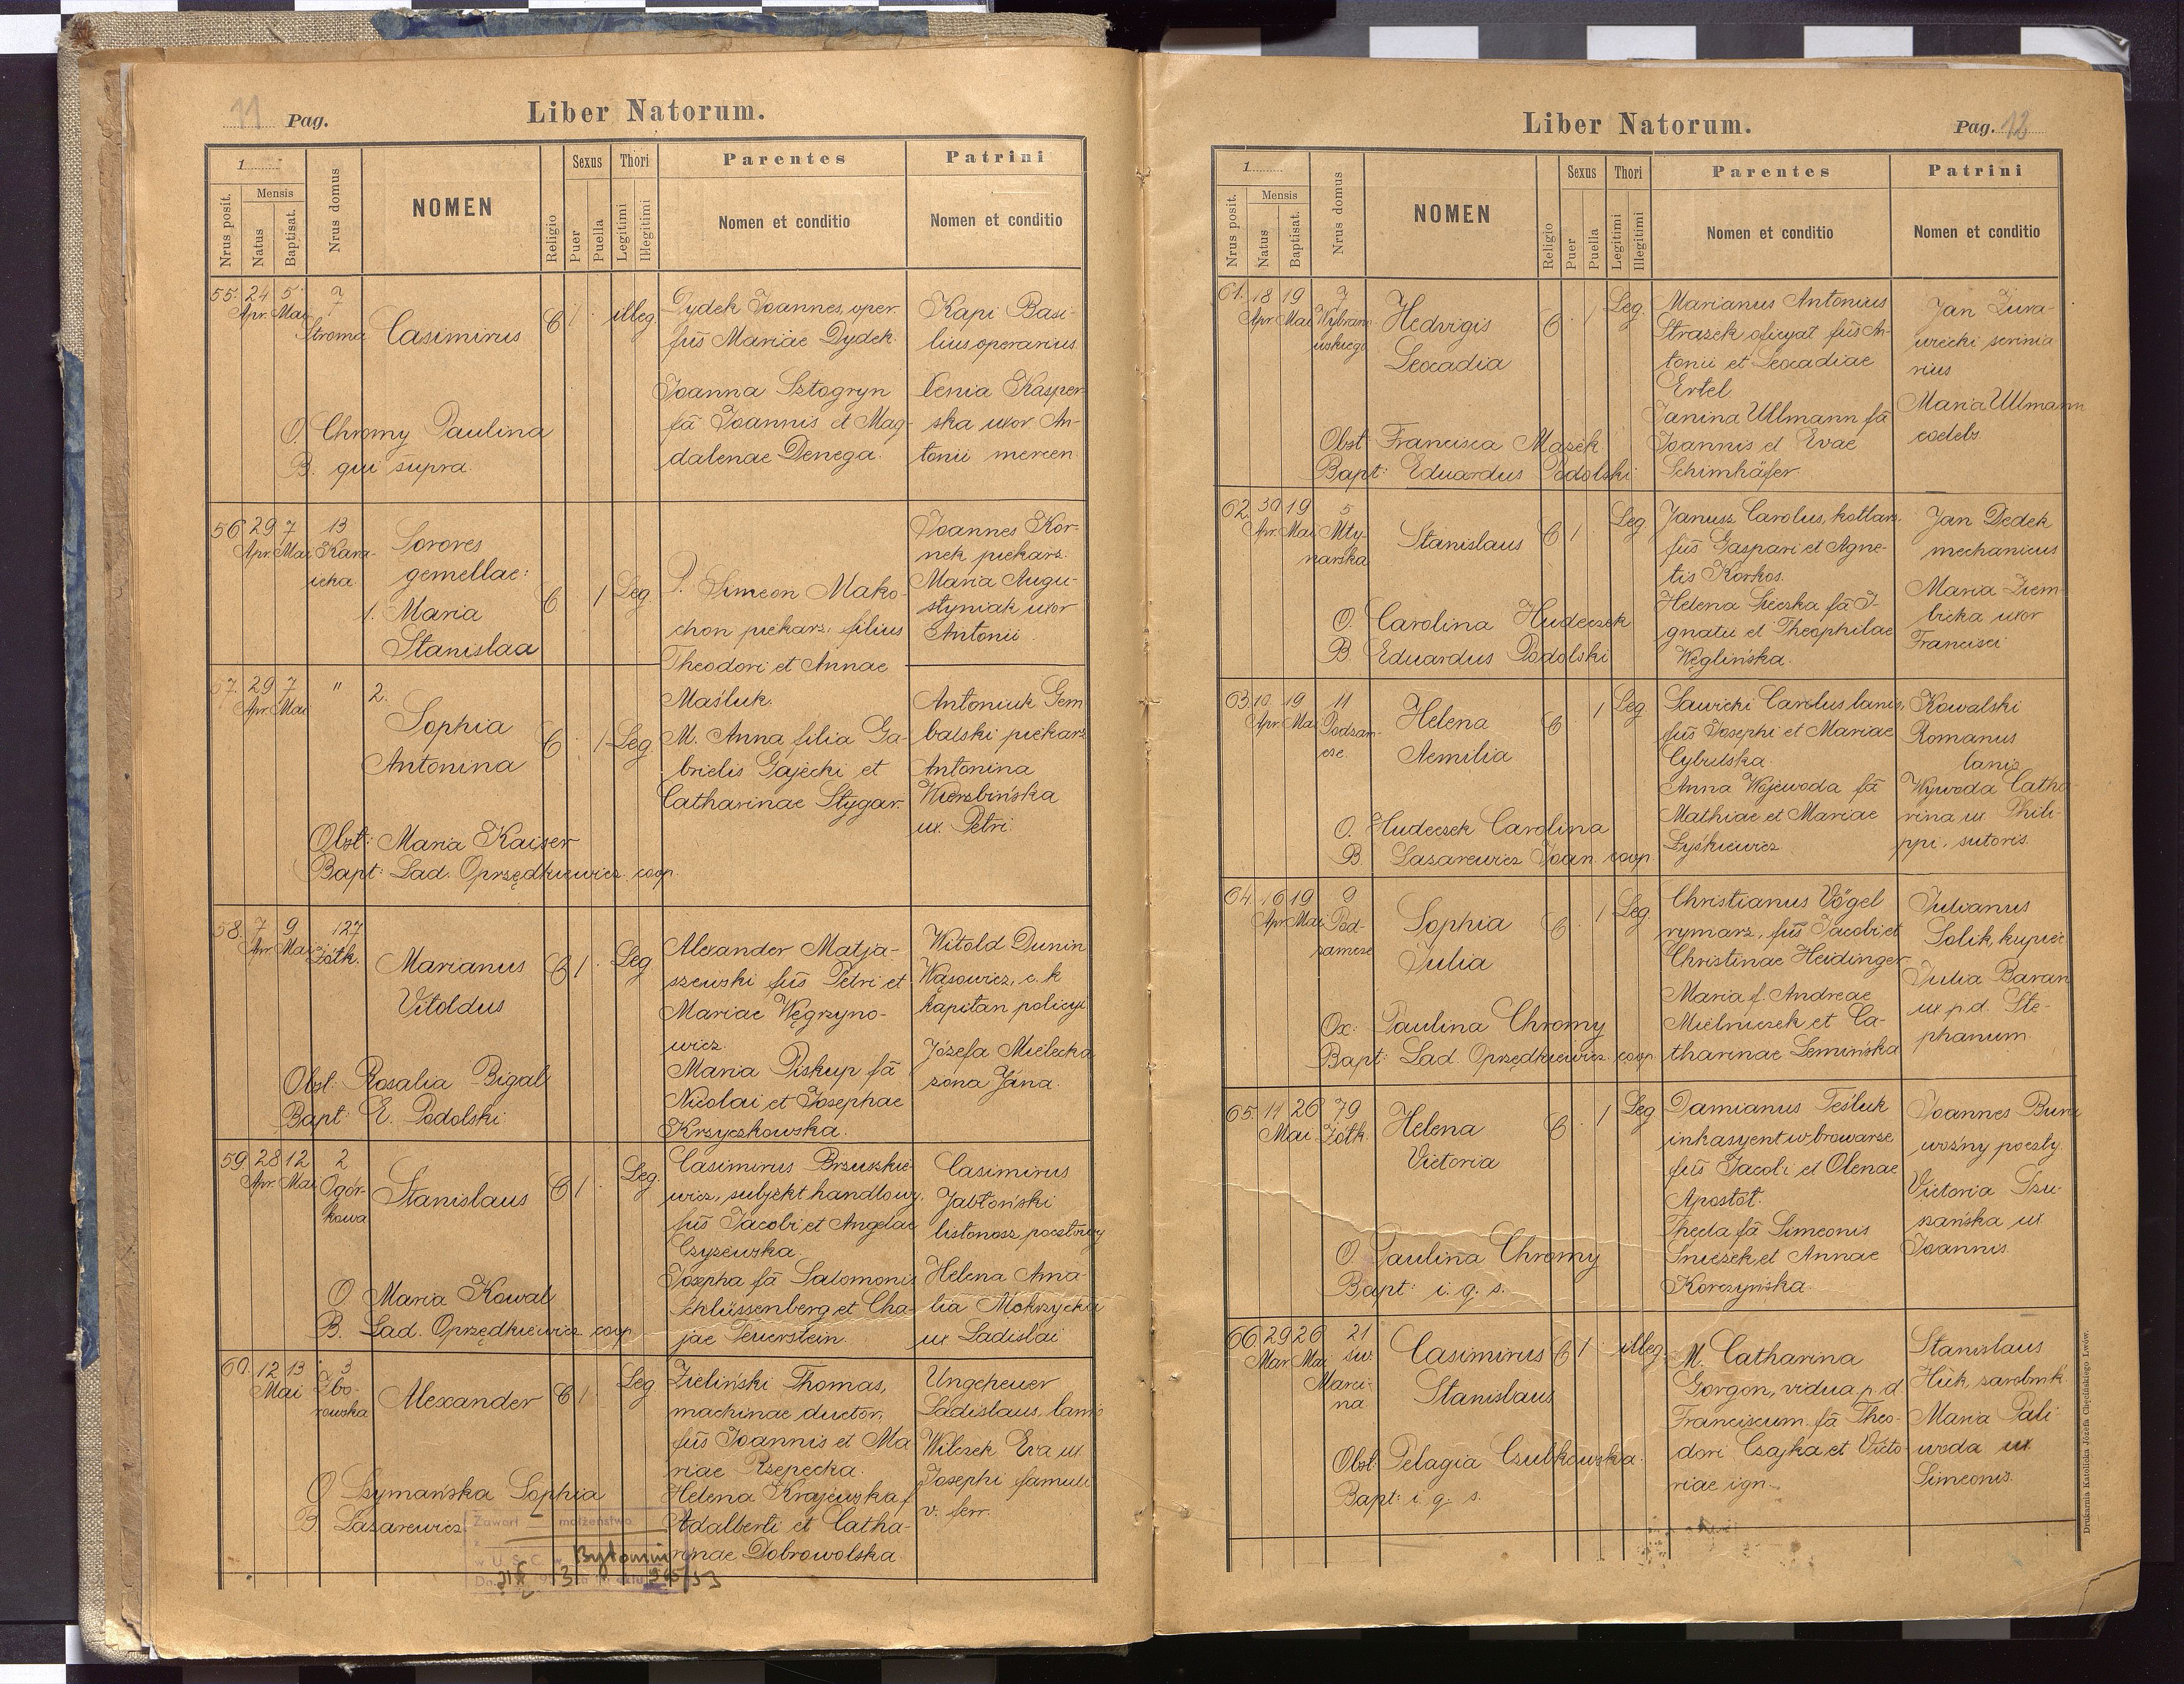 11 Pag.
Liber Natorum.
1
Nrus posit.
Mensis
Natus
Baptisat.
Nrus domus
NOMEN
Religio
Sexus
Puer
Puella
Thori
Legitimi
Illegitimi
Parentes
Nomen et conditio
Patrini
Nomen et conditio
55. 24 Apr. 5 Mai
7
Stroma
Casimirus
C 1 illeg.
Dydek Joannes, oper.
fus Mariae Dydek.
Joanna Sztogryn
fa Joannis et Mag-
dalenae Denega.
Kapi Basi-
lius, operarius
Xenia Kasper-
ska uxor An-
tonii mercen.
O. Chromy Paulina
B. qui supra.
56 29 Apr. 7 Mai
13
Sorores
gemellae:
1. Maria
Stanislaa
C 1 Leg.
P. Simeon Mako-
chon piekarz, filius
Theodori et Annae
Maśluk.
M. Anna filia Ga-
brielis Gajecki et
Catharinae Stygar.
Joannes Kor-
nek piekarz.
Maria Augu-
styniak uxor
Antonii.
57. 29 Apr. 7 Mai
" 2.
Sophia
Antonina
C 1 Leg.
Antoniuk Gem
balski piekarz
Antonina
Wierzbińska
ux. Petri.
Obst: Maria Kaiser
Bapt: Lad. Oprzędkiewicz coop.
58. 7 Apr. 9 Mai
127
Żółk.
Marianus
Vitoldus
C 1 Leg
Alexander Matja-
szewski fus Petri et
Mariae Węgrzyno-
wicz.
Maria Piskup fa
Nicolai et Josephae
Krzyczkowska.
Witold Dunin
Wąsowicz, c. k
kapitan policyi
Józefa Mielecka
żona Jana.
Obst: Rosalia Bigal
Bapt: E. Podolski.
59 28 Apr. 12 Mai
2
Ogór-
kowa
Stanislaus
C 1 Leg.
Casimirus Brzuszkie-
wicz, subjekt handlowy,
fus Jacobi et Angelae
Czyżewska.
Josepha fa Salomonis
Schlüssenberg et Cha-
jae Feuerstein.
Casimirus
Jabłoński
listonosz pocztowy
Helena Ama-
lia Mokrzycka
ux Ladislai
O Maria Kowal
B. Lad. Oprzędkiewicz coop
60. 12 13 Mai
3
Zbo-
rowska
Alexander
C 1 Leg
Zieliński Thomas,
machinae ductor,
fus Joannis et Ma
riae Rzepecka.
Helena Krajewska f
Adalberti et Catha-
rinae Dobrowolska.
Ungeheuer
Ladislaus, lanio
Wilczek Eva ux
Josephi famuli
v. ferr.
O Szymańska Sophia
B Lazarewicz
Zawarł małżeństwo
w U. S. C. w Bytomiu
Liber Natorum.
Pag. 12
1
Nrus posit.
Mensis
Natus
Baptisat.
Nrus domus
NOMEN
Religio
Sexus
Puer
Puella
Thori
Legitimi
Illegitimi
Parentes
Nomen et conditio
Patrini
Nomen et conditio
61. 18 Apr 19 Mai
7
Wybran-
wskiego
Hedvigis
Leocadia
C 1 Leg.
Marianus Antonius
Strazek oficyał fus An-
tonii et Leocadiae
Ertel
Janina Ullmann fa
Joannis et Evae
Schimhäfer.
Jan Żura-
wiecki scrinia-
rius
Maria Ullmann
coelebs.
Obst: Francisca Mazek
Bapt: Eduardus Podolski
62. 30 Apr. 19 Mai
5
Mły-
narska
Stanislaus
C 1 Leg.
Janusz Carolus, kotlarz,
fus Gaspari et Agne-
tis Korkos.
Helena Sieczka fa I-
gnatii et Theophilae
Węglińska.
Jan Dedek
mechanicus
Maria Ziem-
bicka uxor
Francisci
O. Carolina Hudeczek
B. Eduardus Podolski
63. 10 Apr 19 Mai
11
Podzam-
cze.
Helena
Aemilia
C 1 Leg
Sawicki Carolus lanio,
fus Josephi et Mariae
Cybulska.
Anna Wojewoda fa
Mathiae et Mariae
Łyśkiewicz.
Kowalski
Romanus
lanio
Wywoda Catha-
rina ux Phili-
ppi, sutoris.
O. Hudeczek Carolina
B. Lazarewicz Joan coop.
64 16 Apr 19 Mai
9
Pod-
zamcze
Sophia
Julia
C 1 Leg
Christianus Vögel
rymarz, fus Jacobi et
Christinae Heidinger
Maria f. Andreae
Mielniczek et Ca-
tharinae Lemińska
Julianus
Solik, kupiec
Julia Baran
ux p.d. Ste-
phanum
Ox: Paulina Chromy
Bapt: Lad. Oprzędkiewicz coop
65. 11 26 Mai
79
Żółk.
Helena
Victoria
C 1 Leg
Damianus Teśluk
inkasyent w browarze
fus Jacobi et Olenae
Apostół.
Theda fa Simeonis
Snieżek et Annae
Korczyńska.
Joannes Buni
woźny poczty.
Victoria Szu-
szańska ux
Joannis.
O. Paulina Chromy
Bapt: i. q. s.
66. 29 Mar. 26 Mai
21
św.
Marci-
na
Casimirus
Stanislaus
C 1 illeg.
M. Catharina
Gorgon, vidua p.d.
Franciscum, fa Theo-
dori Czajka et Victo-
riae ign.
Stanislaus
Huk, zarobnik
Maria Pali-
woda ux
Simeonis.
Obst: Pelagia Csulkowska.
Bapt: i. q. s.
Drukarnia Katolicka Józefa Chęcińskiego Lwów.